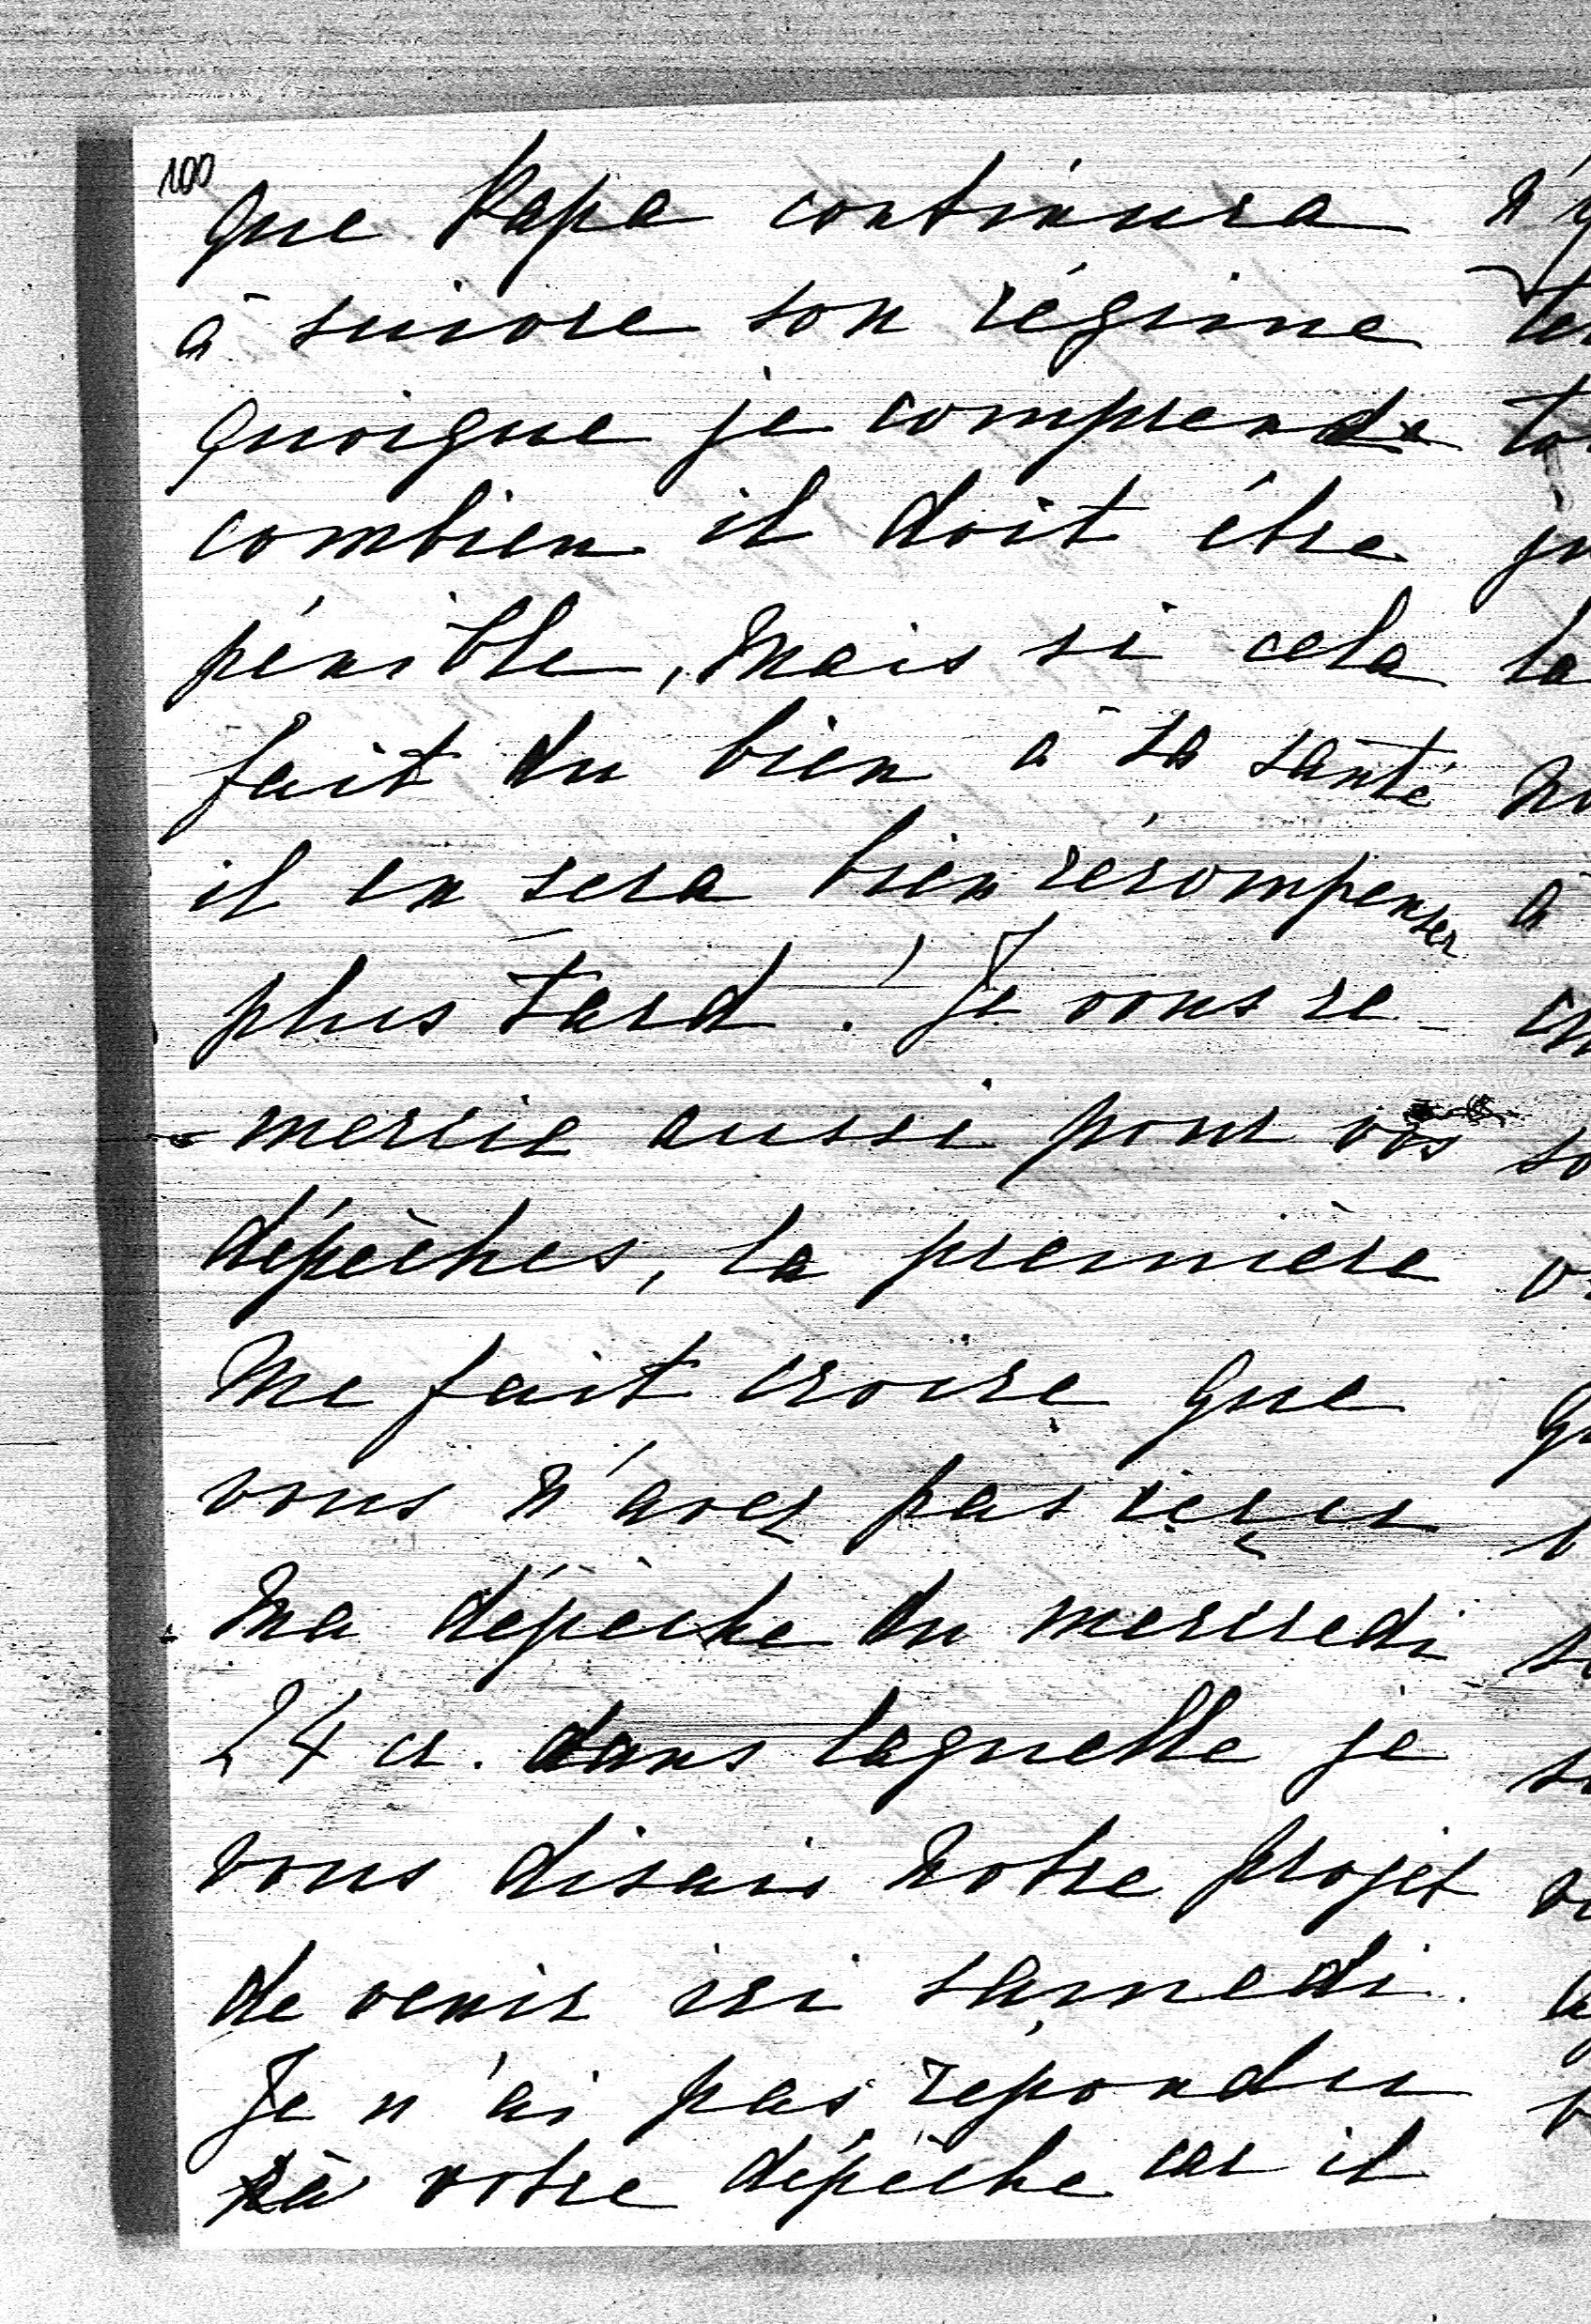 100
que Papa continura
à suivre son régime
quoique je comprende
combien il doit être
pénible, mais si cela
fait du bien à sa santé
il en sera bien récompenser
plus tard! Je vous re-
-mercie aussi pour vos
dépêches, la première
me fait croire que
vous n'avez pas reçu
ma dépêche du mercredi
24 ct. dans laquelle je
vous disais notre projet
de venir ici samedi.
Je n'ai pas répondu
à votre dépêche car il